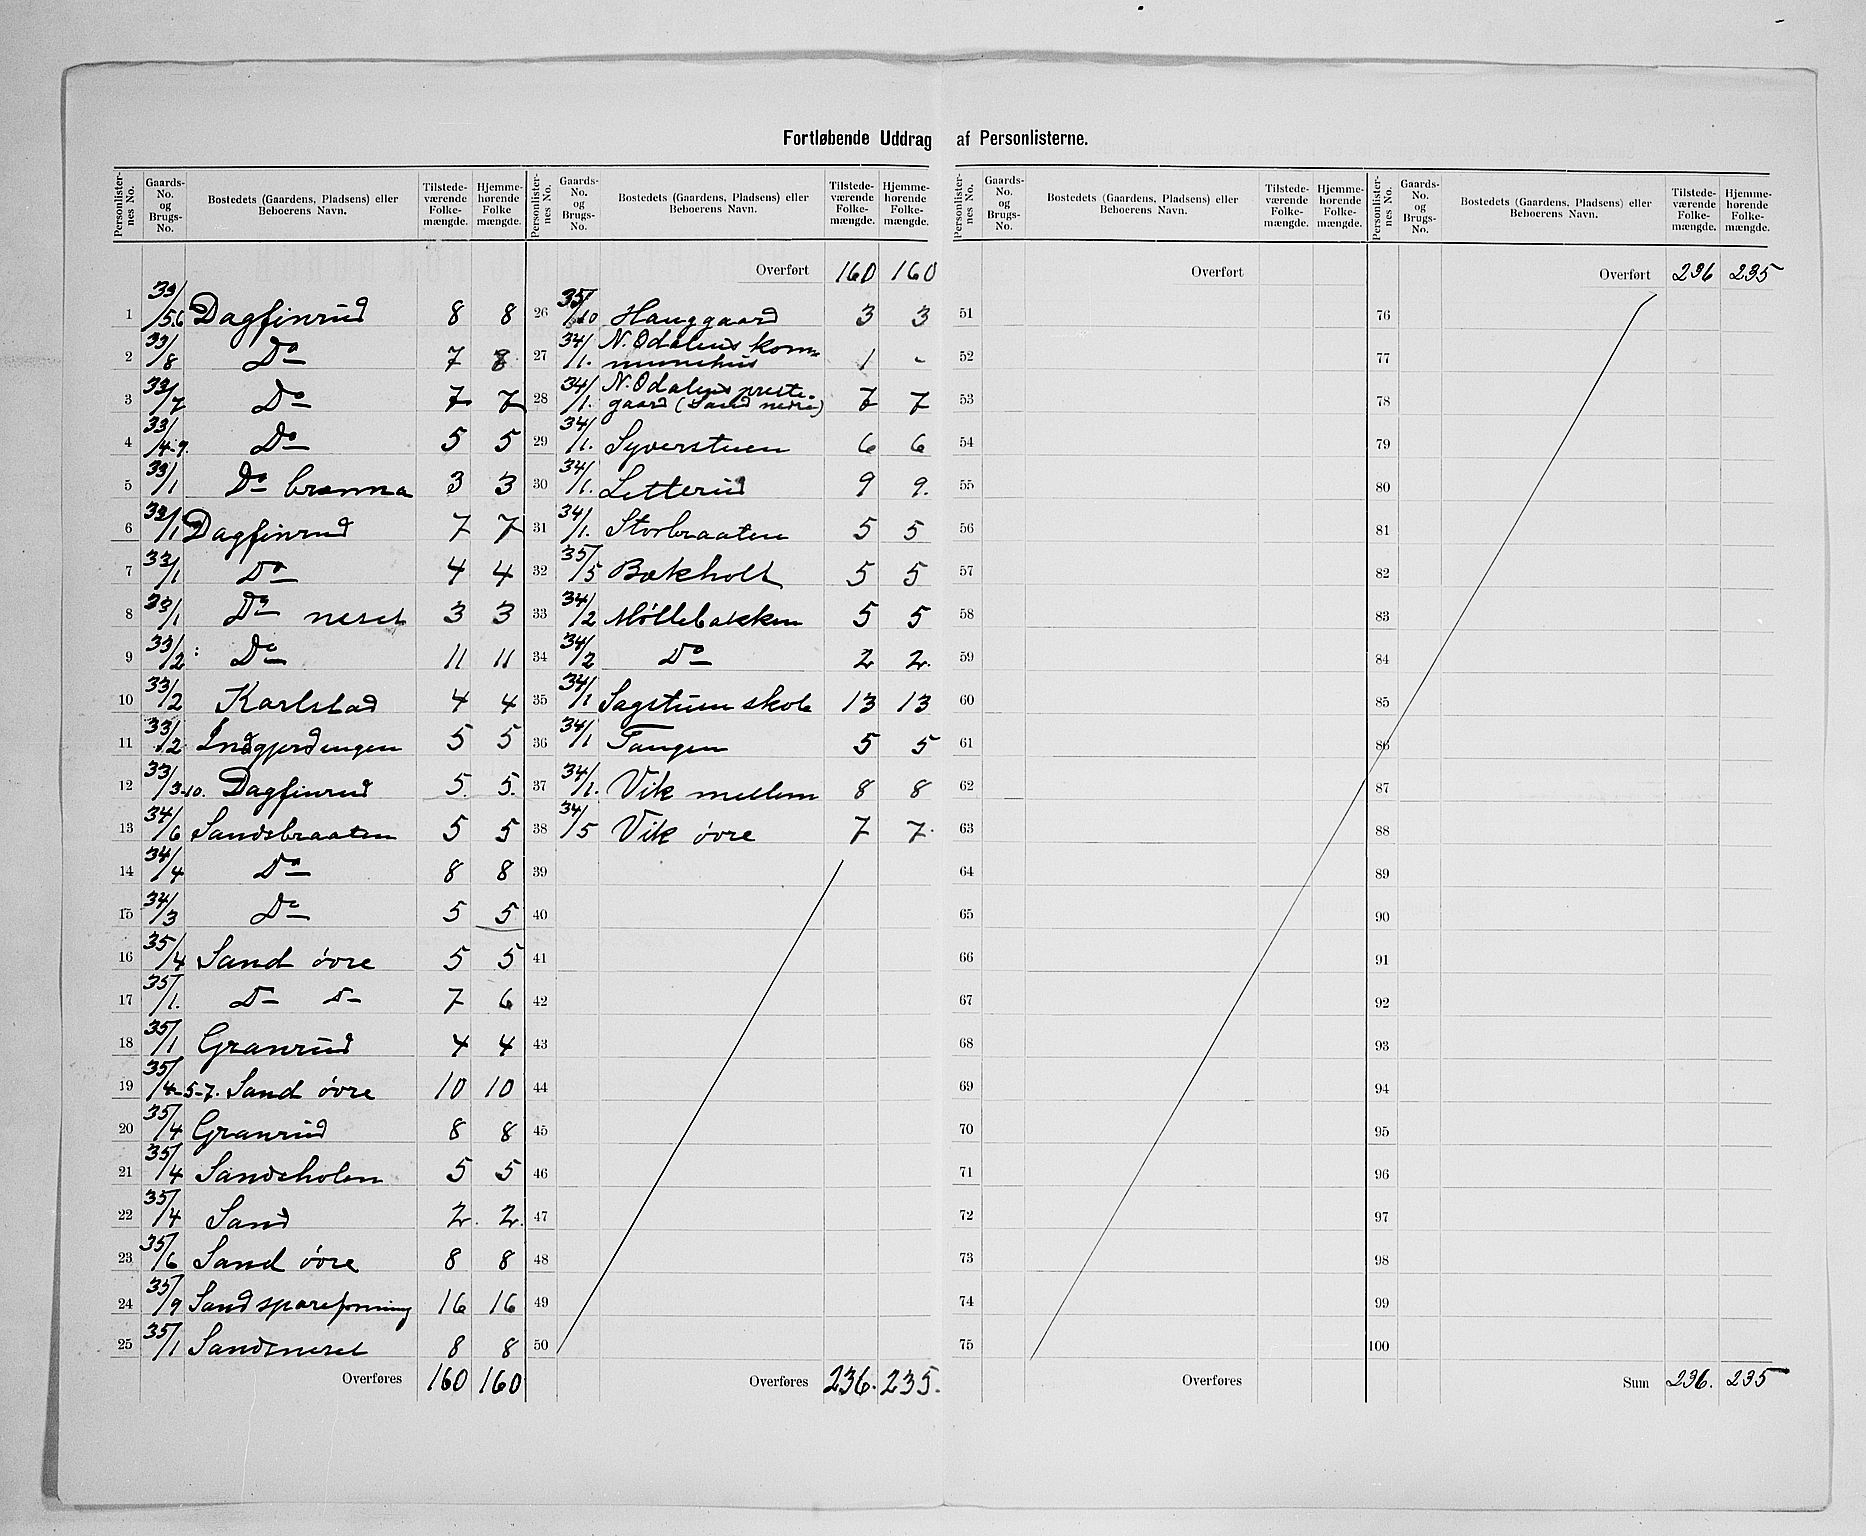 Fortløbende Uddrag af Personlisterne.
Personlisternes No. Gaards-No. og Brugs-No. Bostedets (Gaardens, Pladsens) eller Beboerens Navn. Tilstedeværende Folkemængde. Hjemmehørende Folkemængde.
1 33/5.6 Dagfinrud 8 8
2 33/8 Do 7 8
3 33/7 Do 7 7
4 33/4-9. Do 5 5
5 33/1 Do brænna 3 3
6 33/1 Dagfinrud 7 7
7 33/1 Do 4 4
8 33/1 Do neset 3 3
9 33/2 Do 11 11
10 33/2 Karlstad 4 4
11 33/2 Indgjerdingen 5 5
12 33/3-10. Dagfinrud 5. 5.
13 34/6 Sandsbraaten 5 5
14 34/4 Do 8 8
15 34/3 Do 5 5
16 35/4 Sand övre 5 5
17 35/1. Do Do 7 6
18 35/1 Granrud 4 4
19 35/4-5-7. Sand övre 10 10
20 35/4 Granrud 8 8
21 35/4 Sandsholen 5 5
22 35/4 Sand 2. 2.
23 35/6 Sand övre 8 8
24 35/9 Sand spareforening 16 16
25 35/1 Sandsneset 8 8
Overføres 160 160
Personlisternes No. Gaards-No. og Brugs-No. Bostedets (Gaardens, Pladsens) eller Beboerens Navn. Tilstedeværende Folkemængde. Hjemmehørende Folkemængde.
Overført 160 160
26 35/10 Hauggaard 3 3
27 34/1. N. Odalens kommunehus 1 -
28 34/1. N. Odalens prestegaard (Sand nedre) 7 7
29 34/1. Syverstuen 6 6
30 34/1. Letterud 9 9.
31 34/1. Storbraaten 5 5
32 35/5 Bækholt 5 5
33 34/2 Möllebakken 5 5
34 34/2 Do 2 2.
35 34/1 Sagstuen skole 13 13
36 34/1 Tangen 5 5
37 34/1. Vik mellem 8 8
38 34/5 Vik övre 7 7.
39
40
41
42
43
44
45
46
47
48
49
50
Overføres 236. 235.
Personlisternes No. Gaards-No. og Brugs-No. Bostedets (Gaardens, Pladsens) eller Beboerens Navn. Tilstedeværende Folkemængde. Hjemmehørende Folkemængde.
Overført
51
52
53
54
55
56
57
58
59
60
61
62
63
64
65
66
67
68
69
70
71
72
73
74
75
Overføres
Personlisternes No. Gaards-No. og Brugs-No. Bostedets (Gaardens, Pladsens) eller Beboerens Navn. Tilstedeværende Folkemængde. Hjemmehørende Folkemængde.
Overført 236 235
76
77
78
79
80
81
82
83
84
85
86
87
88
89
90
91
92
93
94
95
96
97
98
99
100
Sum 236. 235